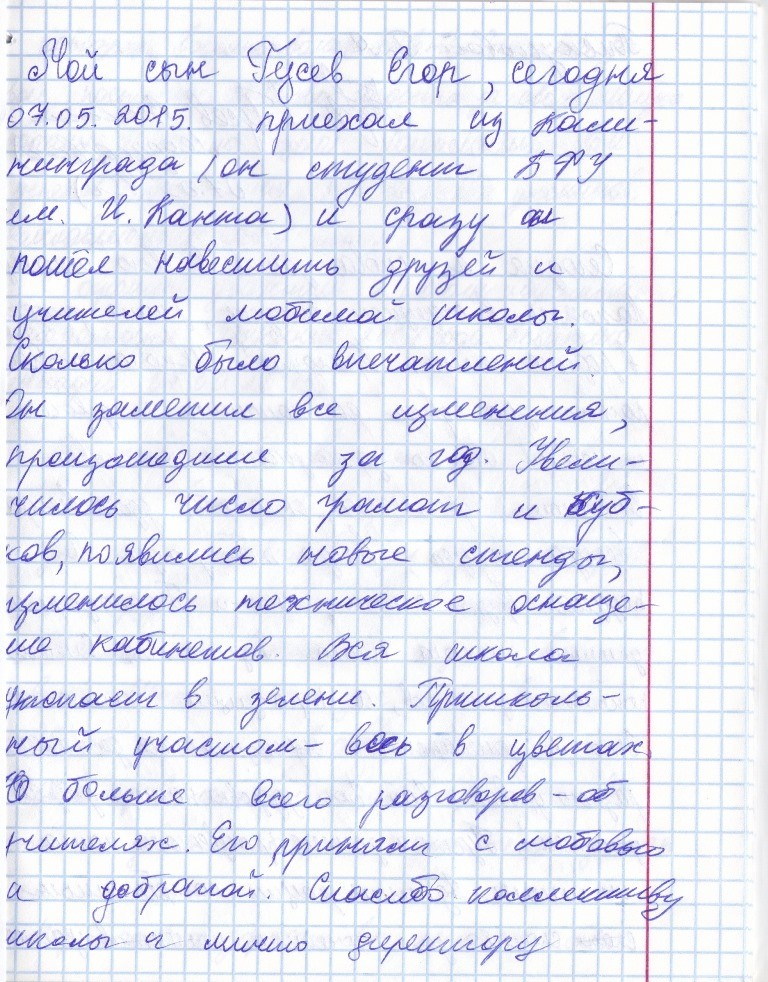 Мой сын Гусев Егор, сегодня
07.05.2015. приехал из Кали-
нинграда (он студент БФУ
им. И. Канта) и сразу
пошёл навестить друзей и
учителей любимой школы.
Сколько было впечатлений.
Он заметил все изменения,
произошедшие за год. Увели-
чилось число грамот и куб-
ков, появились новые стенды,
изменилось техническое оснаще-
ние кабинетов. Вся школа
утопает в зелени. Пришколь-
ный участок - весь в цветах,
О больше всего разговоров - об
учителях. Его приняли с любовью
и добротой. Спасибо коллективу
школы и лично директору